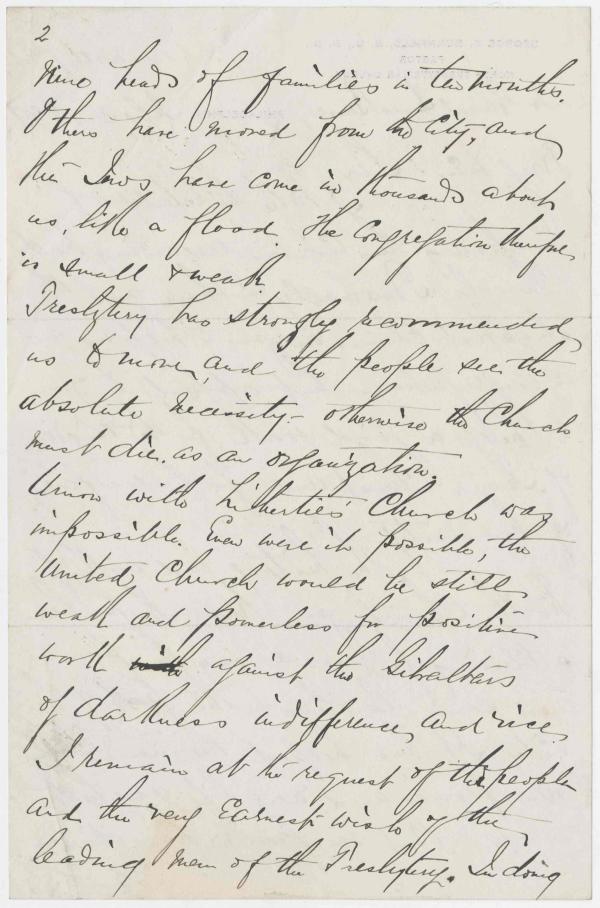 2
nine heads of families in ten months.
Others have moved from the City, and
the Jews have come in thousands about
us, like a flood. The Congregation therefore
is small & weak.
Presbytery has strongly recommended
us to move, and the people see the
absolute necessity - otherwise the Church
must die, as an organization.
Union with Liberties' Church was
impossible. Even were it possible, the
United Church would be still
weak and powerless for positive
work with against the Gibraltars
of darkness indifference, and vice.
I remain at the request of the people
and the very Earnest wish of the
leading men of the Presbytery. In doing